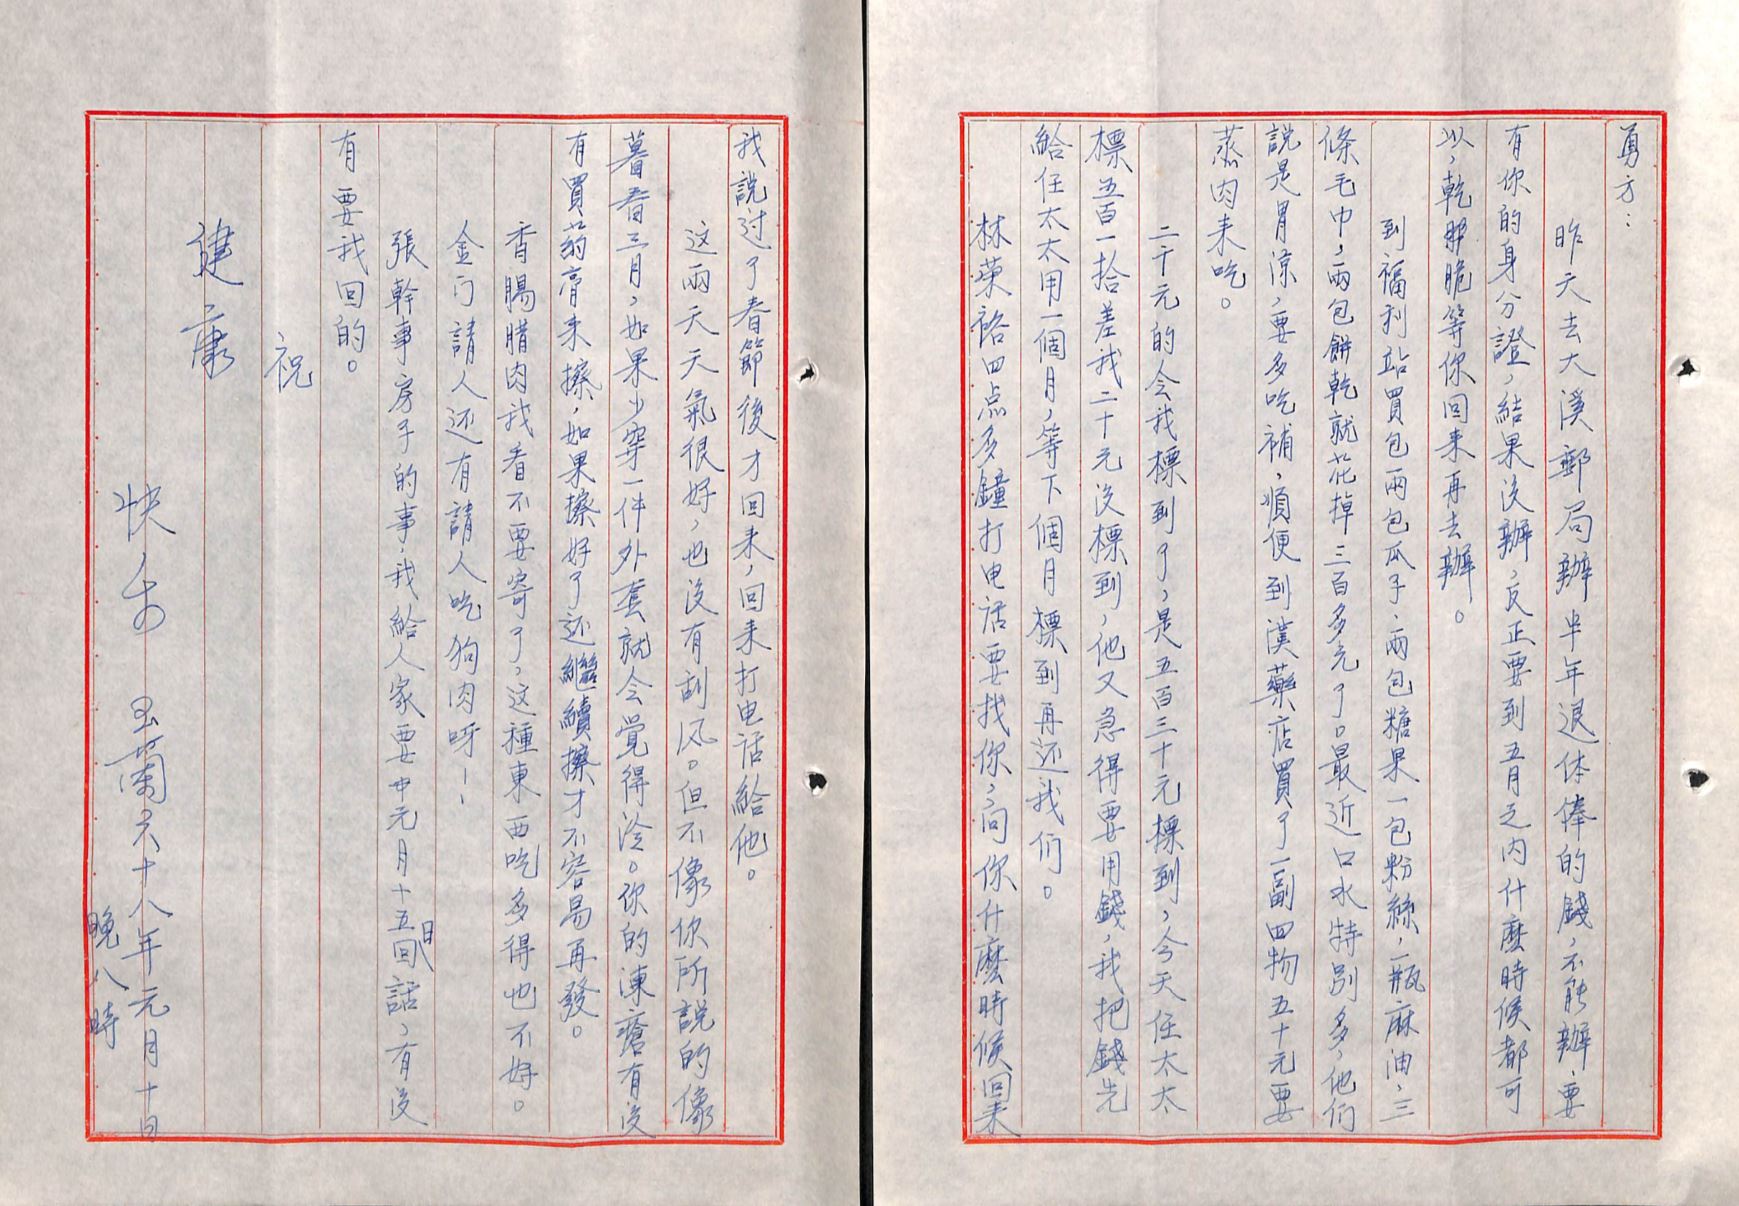 勇方：
昨天去大溪郵局辦半年退休俸的錢，不能辦，要
有你的身分證，結果沒辦，反正要到五月之內什麼時候都可
以，乾脆等你回來再去辦。
到福利站買包兩包瓜子，兩包糖果一包粉絲，一瓶麻油，三
條毛巾，兩包餅乾就花掉三百多元了。最近口水特別多，他們
說是胃涼，要多吃補，順便到漢藥店買了一副四物五十元要
蒸肉来吃。
二千元的会我標到了，是五百三十元標到，今天任太太
標五百一拾差我二十元沒標到，他又急得要用錢，我把錢先
給任太太用一個月，等下個月標到再还我们。
林榮裕四点多鐘打电话要找你，问你什麼時候回来
我說过了春節後才回来，回来打电话給他。
这兩天天氣很好，也沒有刮风。但不像你所説的像
暮春三月，如果少穿一件外套就会覺得冷。你的凍瘡有沒
有買葯膏来擦，如果擦好了还繼續擦才不容易再發。
香腸腊肉我看不要寄了，这種東西吃多得也不好。
金门請人还有請人吃狗肉呀！
張幹事房子的事，我給人家要元月十五日回話，有沒
有要我回的。
祝
健康
快乐
玉蘭六十八年元月十日
晚八時